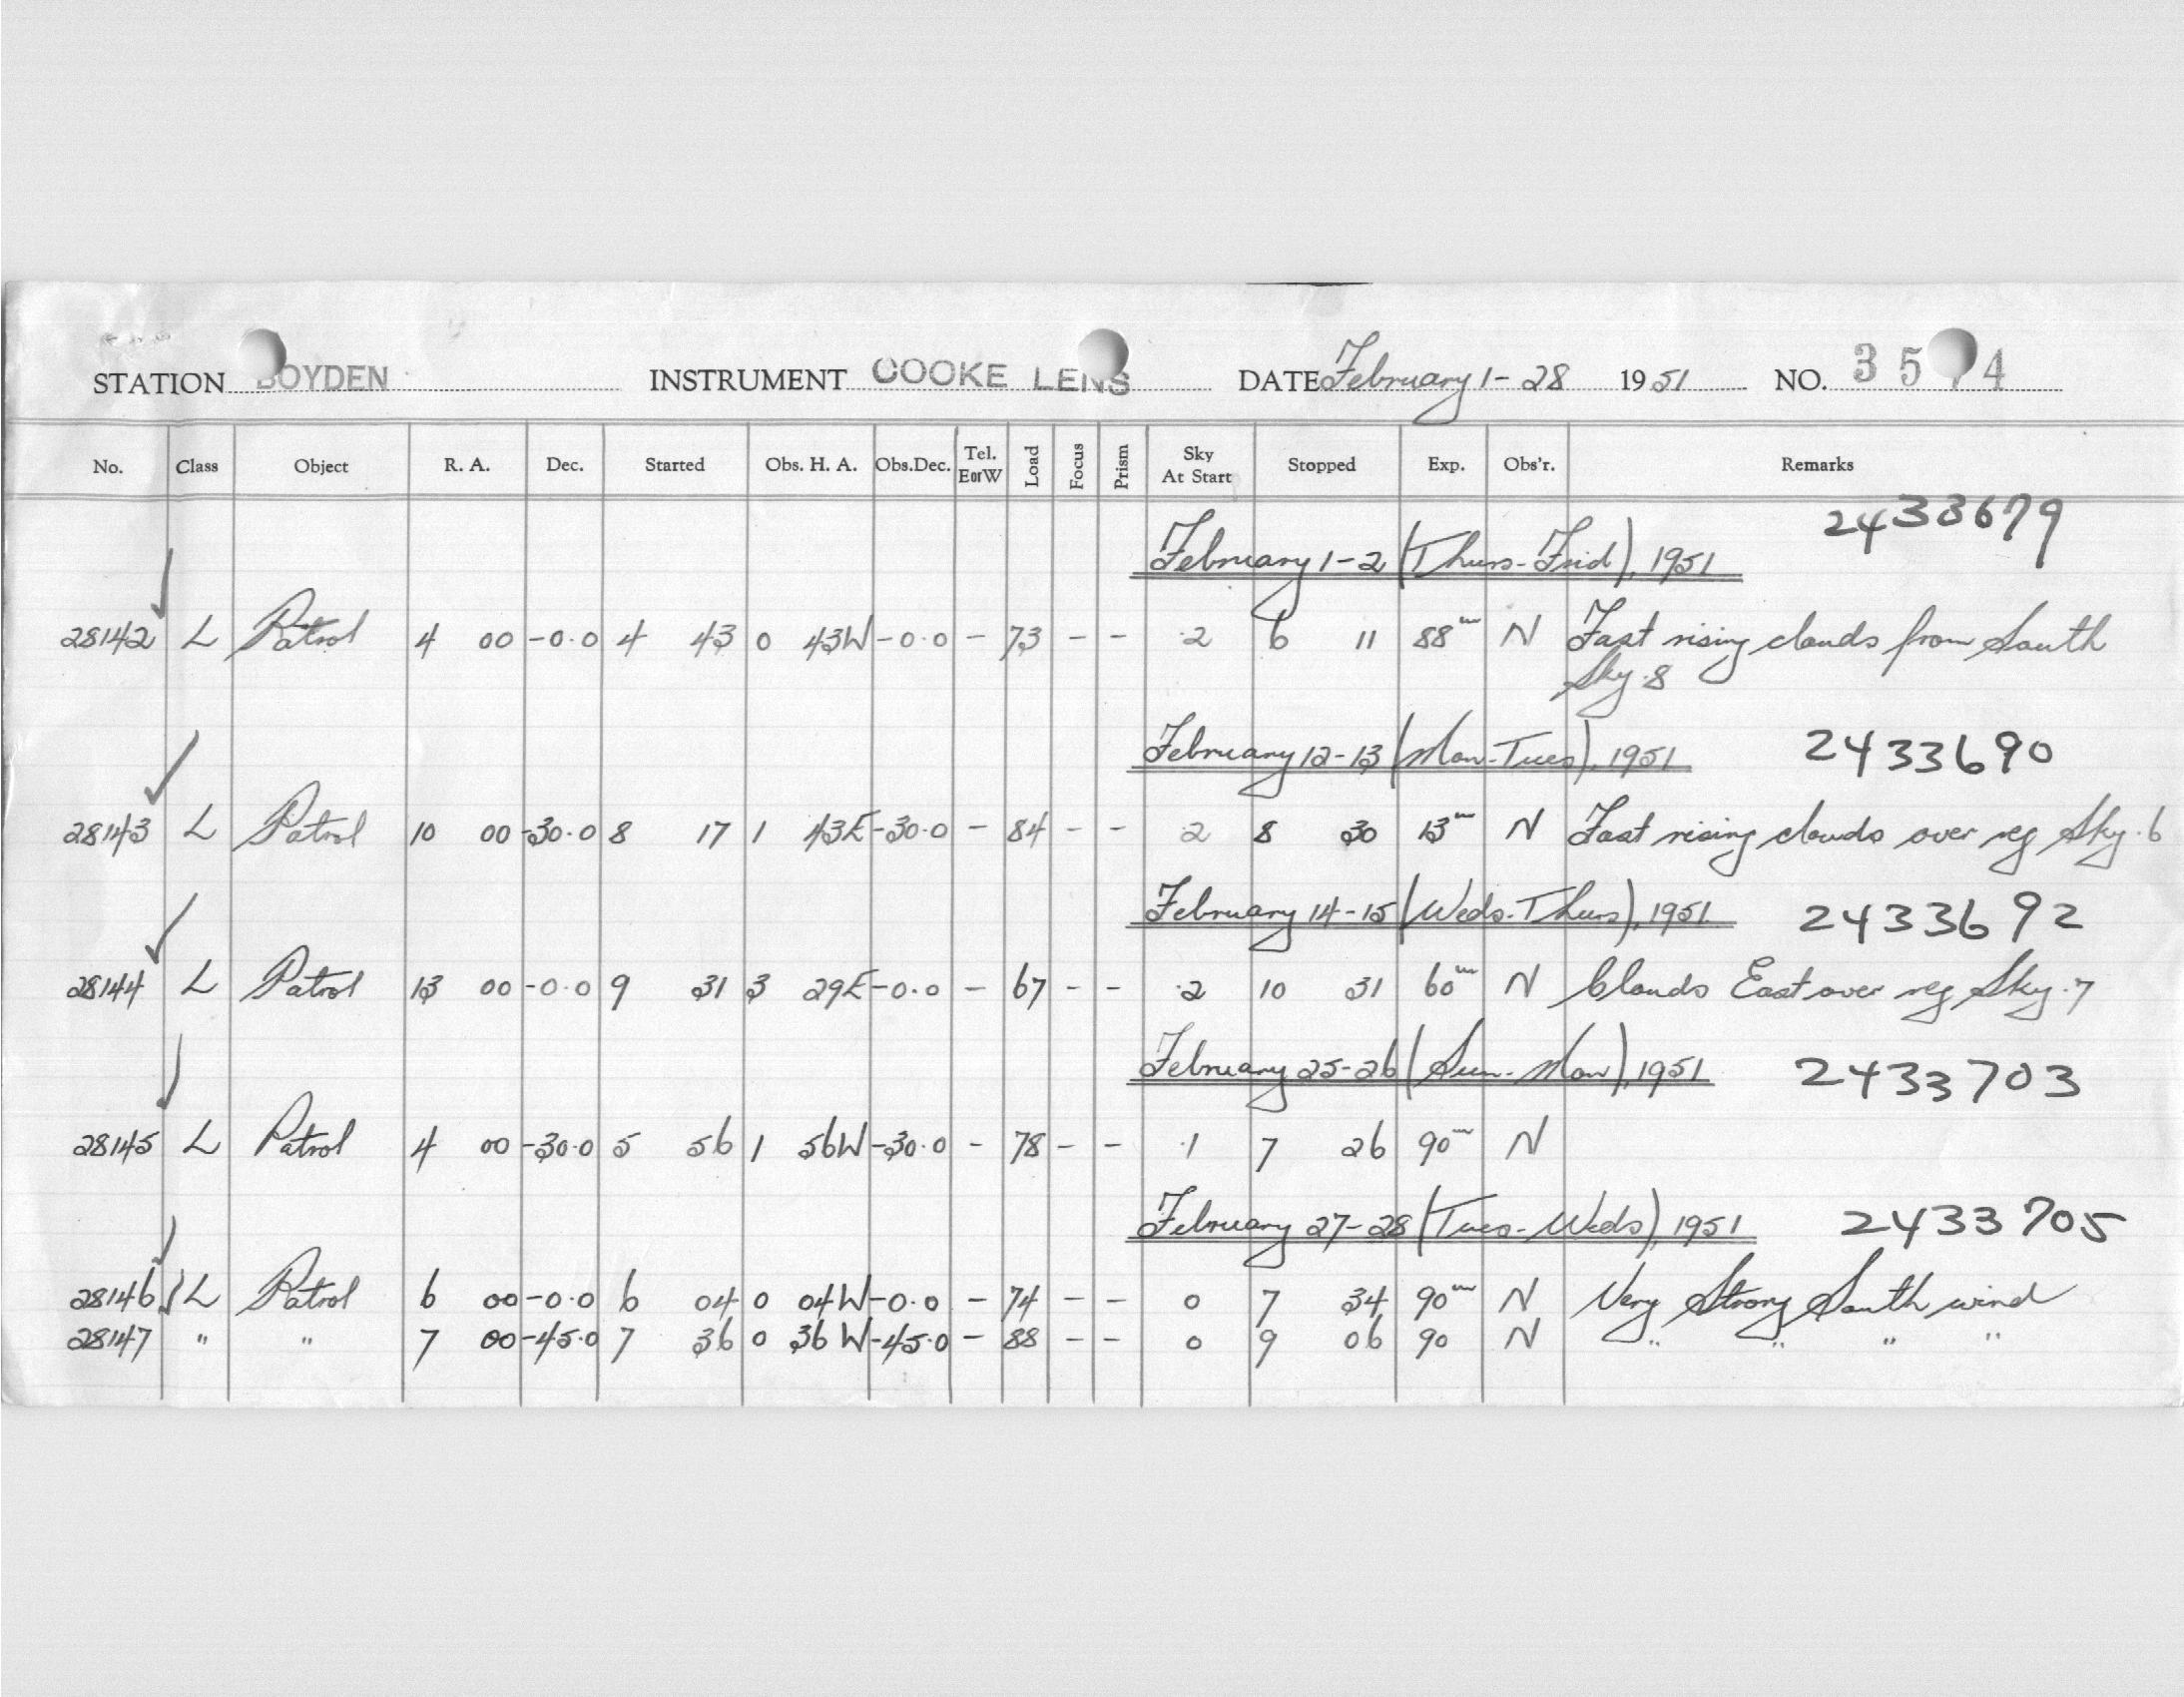 STATION BOYDEN INSTRUMENT COOKE LENS DATE February 1-28 1951 NO. 35 4
No. Class Object R. A. Dec. Started Obs. H. A. Obs.Dec. Tel. EorW Load Focus Prism Sky At Start Stopped Exp. Obs'r. Remarks
February 1-2 (Thurs-Frid), 1951 2433679
28142 L Patrol 4 00 -0.0 4 43 0 43W -0.0 - 73 - - .2 6 11 88m N Fast rising clouds from South
Sky .8
February 12-13 (Mon-Tues), 1951 2433690
28143 L Patrol 10 00 -30.0 8 17 1 43E -30.0 - 84 - - 2 8 30 13m N Fast rising clouds over reg Sky .6
February 14-15 (Weds-Thurs), 1951 2433692
28144 L Patrol 13 00 -0.0 9 31 3 29E -0.0 - 67 - - .2 10 31 60m N Clouds East over reg Sky .7
February 25-26 (Sun-Mon), 1951 2433703
28145 L Patrol 4 00 -30.0 5 56 1 56W -30.0 - 78 - - .1 7 26 90m N
February 27-28 (Tues-Weds), 1951 2433705
28146 L Patrol 6 00 -0.0 6 04 0 04W -0.0 - 74 - - 0 7 34 90m N Very Strong South wind
28147 " " 7 00 -45.0 7 36 0 36W -45.0 - 88 - - 0 9 06 90 N " " " "